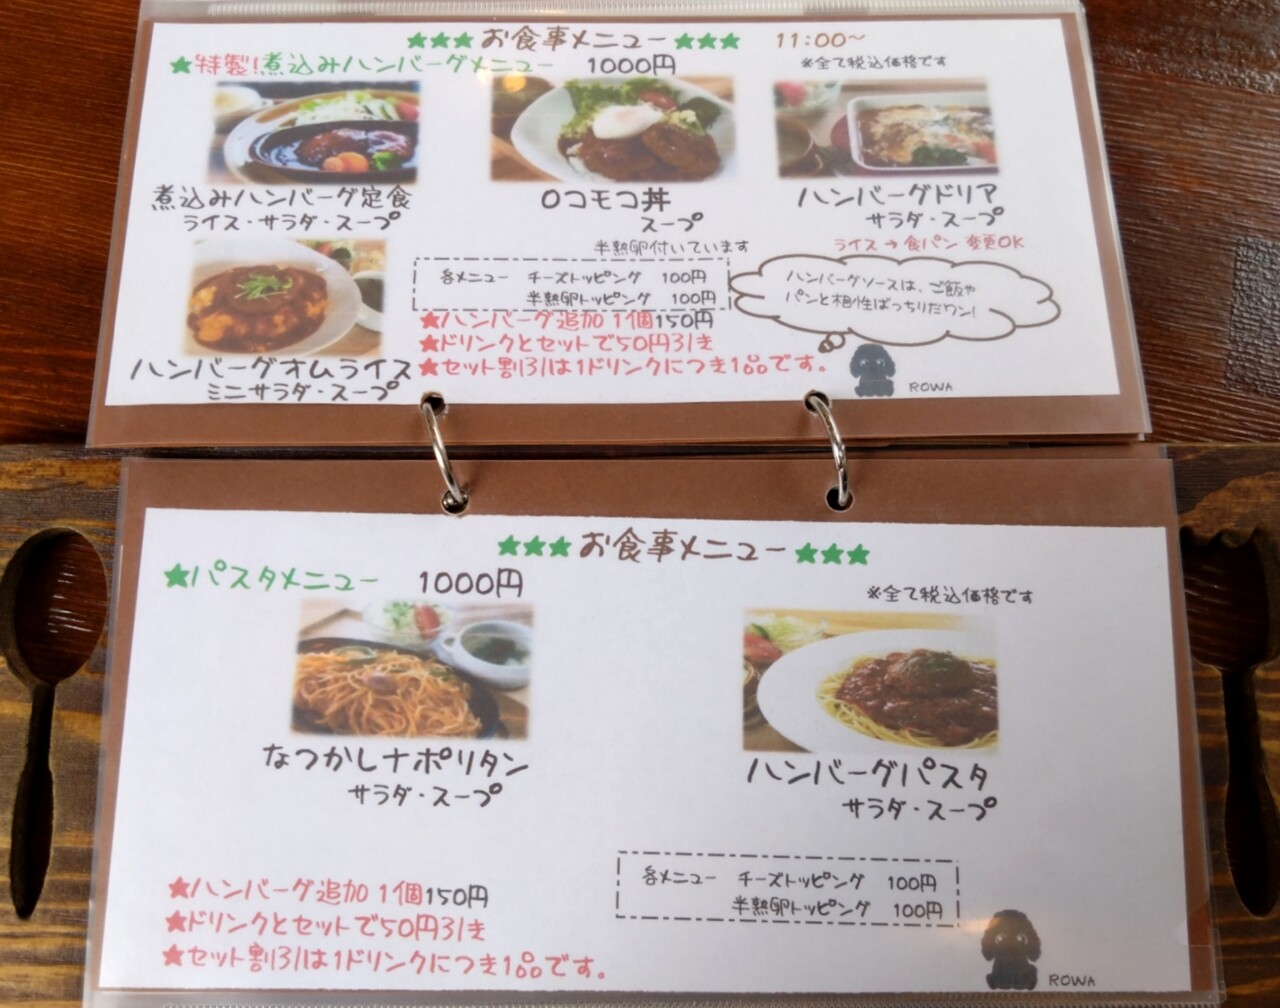 ★★★お食事メニュー★★★ 11:00～
★特製!煮込みハンバーグメニュー 1000円 ※全て税込価格です
煮込みハンバーグ定食
ライス・サラダ・スープ
ロコモコ丼
スープ
半熟卵付いています
ハンバーグドリア
サラダ・スープ
ライス→食パン 変更OK
ハンバーグオムライス
ミニサラダ・スープ
各メニュー チーズトッピング 100円
半熟卵トッピング 100円
★ハンバーグ追加1個150円
★ドリンクとセットで50円引き
★セット割引は1ドリンクにつき1品です。
ハンバーグソースは、ご飯や
パンと相性ばっちりだワン!
ROWA
★★★お食事メニュー★★★
★パスタメニュー 1000円 ※全て税込価格です
なつかしナポリタン
サラダ・スープ
ハンバーグパスタ
サラダ・スープ
★ハンバーグ追加1個150円
★ドリンクとセットで50円引き
★セット割引は1ドリンクにつき1品です。
各メニュー チーズトッピング 100円
半熟卵トッピング 100円
ROWA